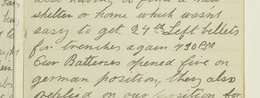 shelter or home which wasnt
easy to get 27th Left billets
for trenches again 730PM
Our Batteries opened fire on
german position, they also
replied on our position for